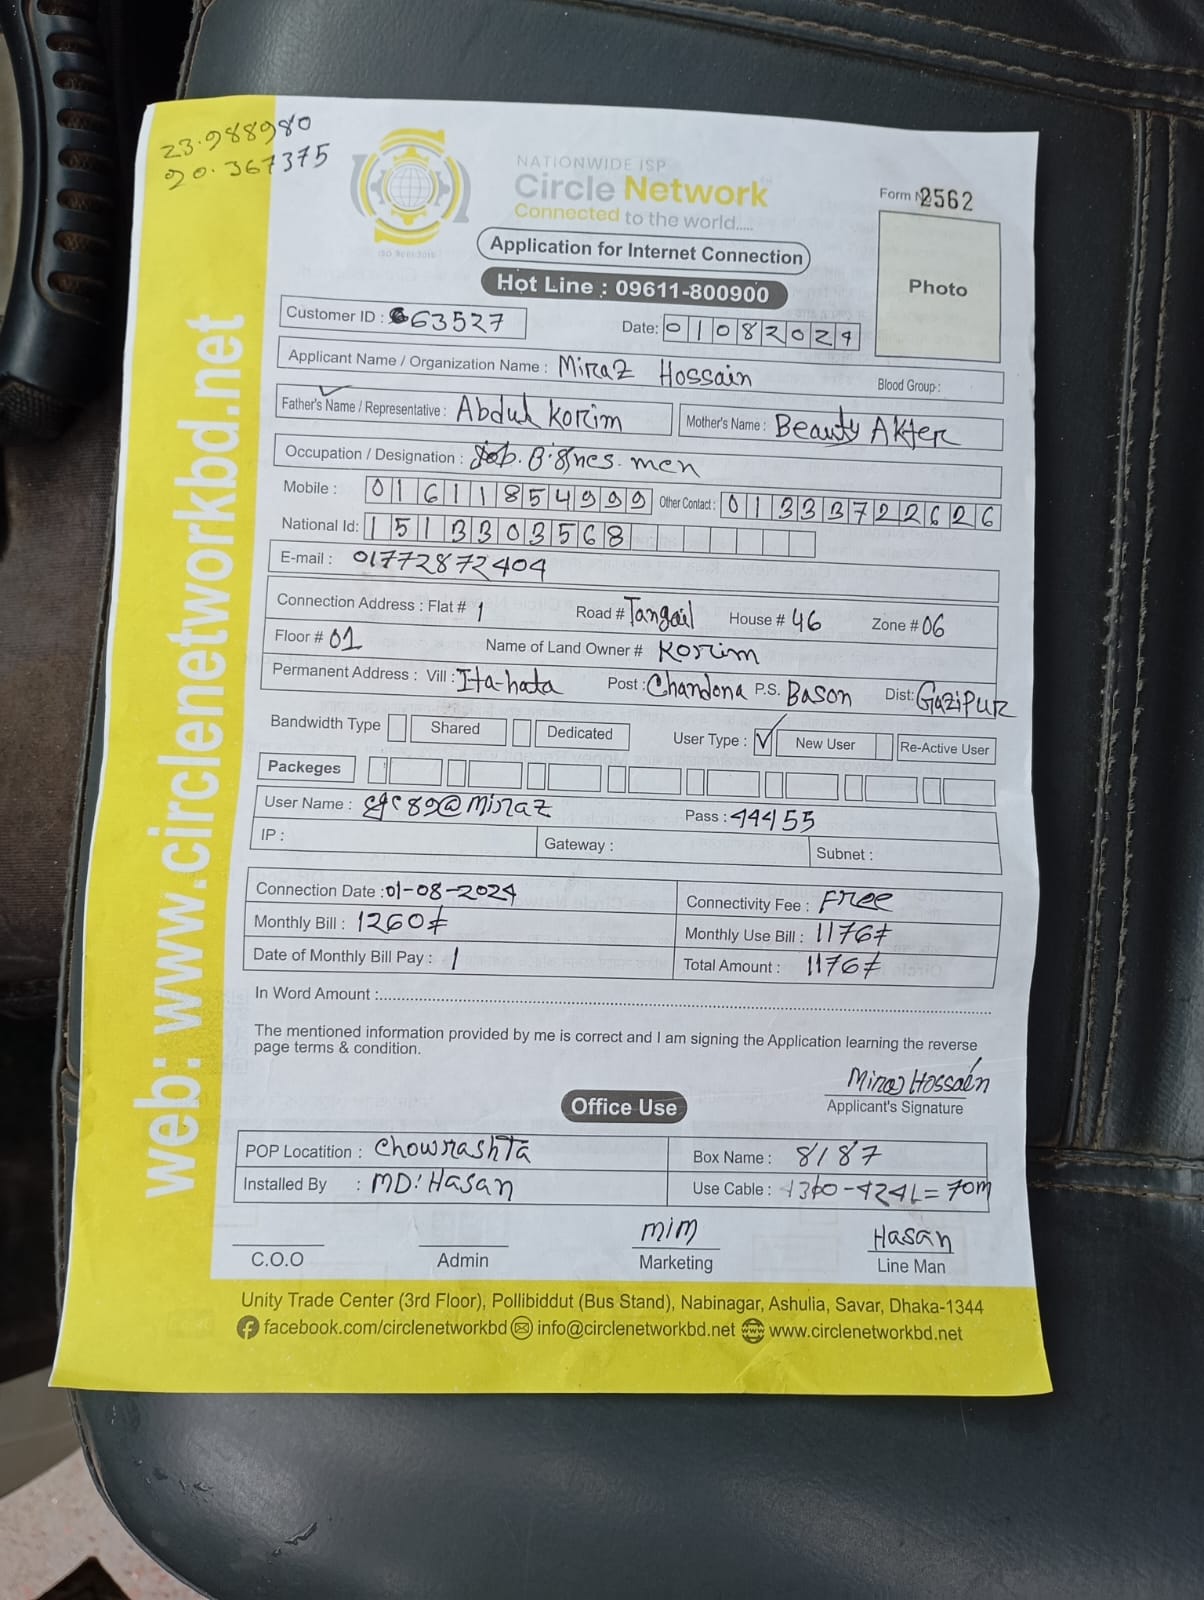 23.988980
90.367375
NATIONWIDE ISP
Circle Network
Connected to the world.....
ISO 9001:2015
Application for Internet Connection
Hot Line : 09611-800900
Form N 2562
Photo
Customer ID : 63527
Date: 01082024
Applicant Name / Organization Name : Miraz Hossain Blood Group :
Father's Name / Representative : Abdul Korim Mother's Name : Beauty Akter
Occupation / Designation : Job. Bisnes. men
Mobile : 01611854999 Other Contact : 01333722626
National Id: 1513303568
E-mail : 01772872404
Connection Address : Flat # 1 Road # Tangail House # 46 Zone # 06
Floor # 01 Name of Land Owner # Korim
Permanent Address : Vill : Ita-hata Post : Chandona P.S. Bason Dist: Gazipur
Bandwidth Type Shared Dedicated User Type : ✓ New User Re-Active User
Packeges
User Name : 89@Miraz Pass : 44455
IP : Gateway : Subnet :
Connection Date : 01-08-2024 Connectivity Fee : Free
Monthly Bill : 1260/= Monthly Use Bill : 1176/=
Date of Monthly Bill Pay : 1 Total Amount : 1176/=
In Word Amount :
The mentioned information provided by me is correct and I am signing the Application learning the reverse
page terms & condition.
Miraz Hossain
Applicant's Signature
Office Use
POP Locatition : Chowrashta Box Name : 8/87
Installed By : MD: Hasan Use Cable : = 70m
MIM Hasan
C.O.O Admin Marketing Line Man
Unity Trade Center (3rd Floor), Pollibiddut (Bus Stand), Nabinagar, Ashulia, Savar, Dhaka-1344
facebook.com/circlenetworkbd info@circlenetworkbd.net www.circlenetworkbd.net
web: www.circlenetworkbd.net